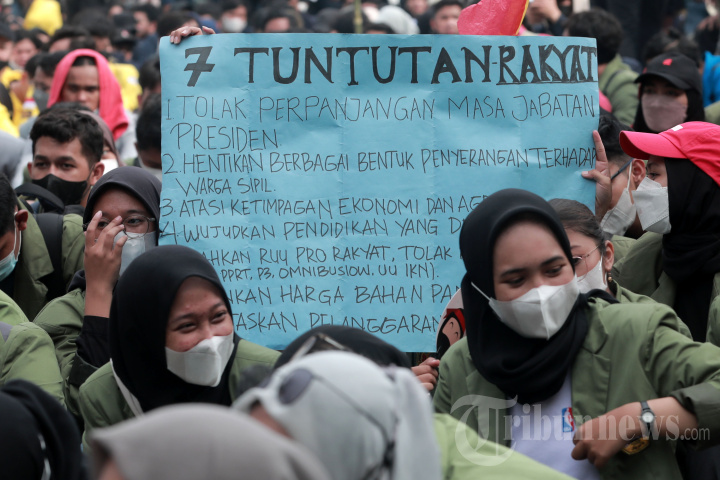 7 TUNTUTAN RAKYAT
1. TOLAK PERPANJANGAN MASA JABATAN
PRESIDEN
2. HENTIKAN BERBAGAI BENTUK PENYERANGAN TERHADAP
WARGA SIPIL.
3. ATASI KETIMPAGAN EKONOMI DAN
4. WUJUDKAN PENDIDIKAN YANG
AHKAN RUU PRO RAKYAT, TOLAK
PPRT. P3, OMNIBUSLOW. UU IKN).
HARGA BAHAN
PELANGGARAN
Tribunnews.com